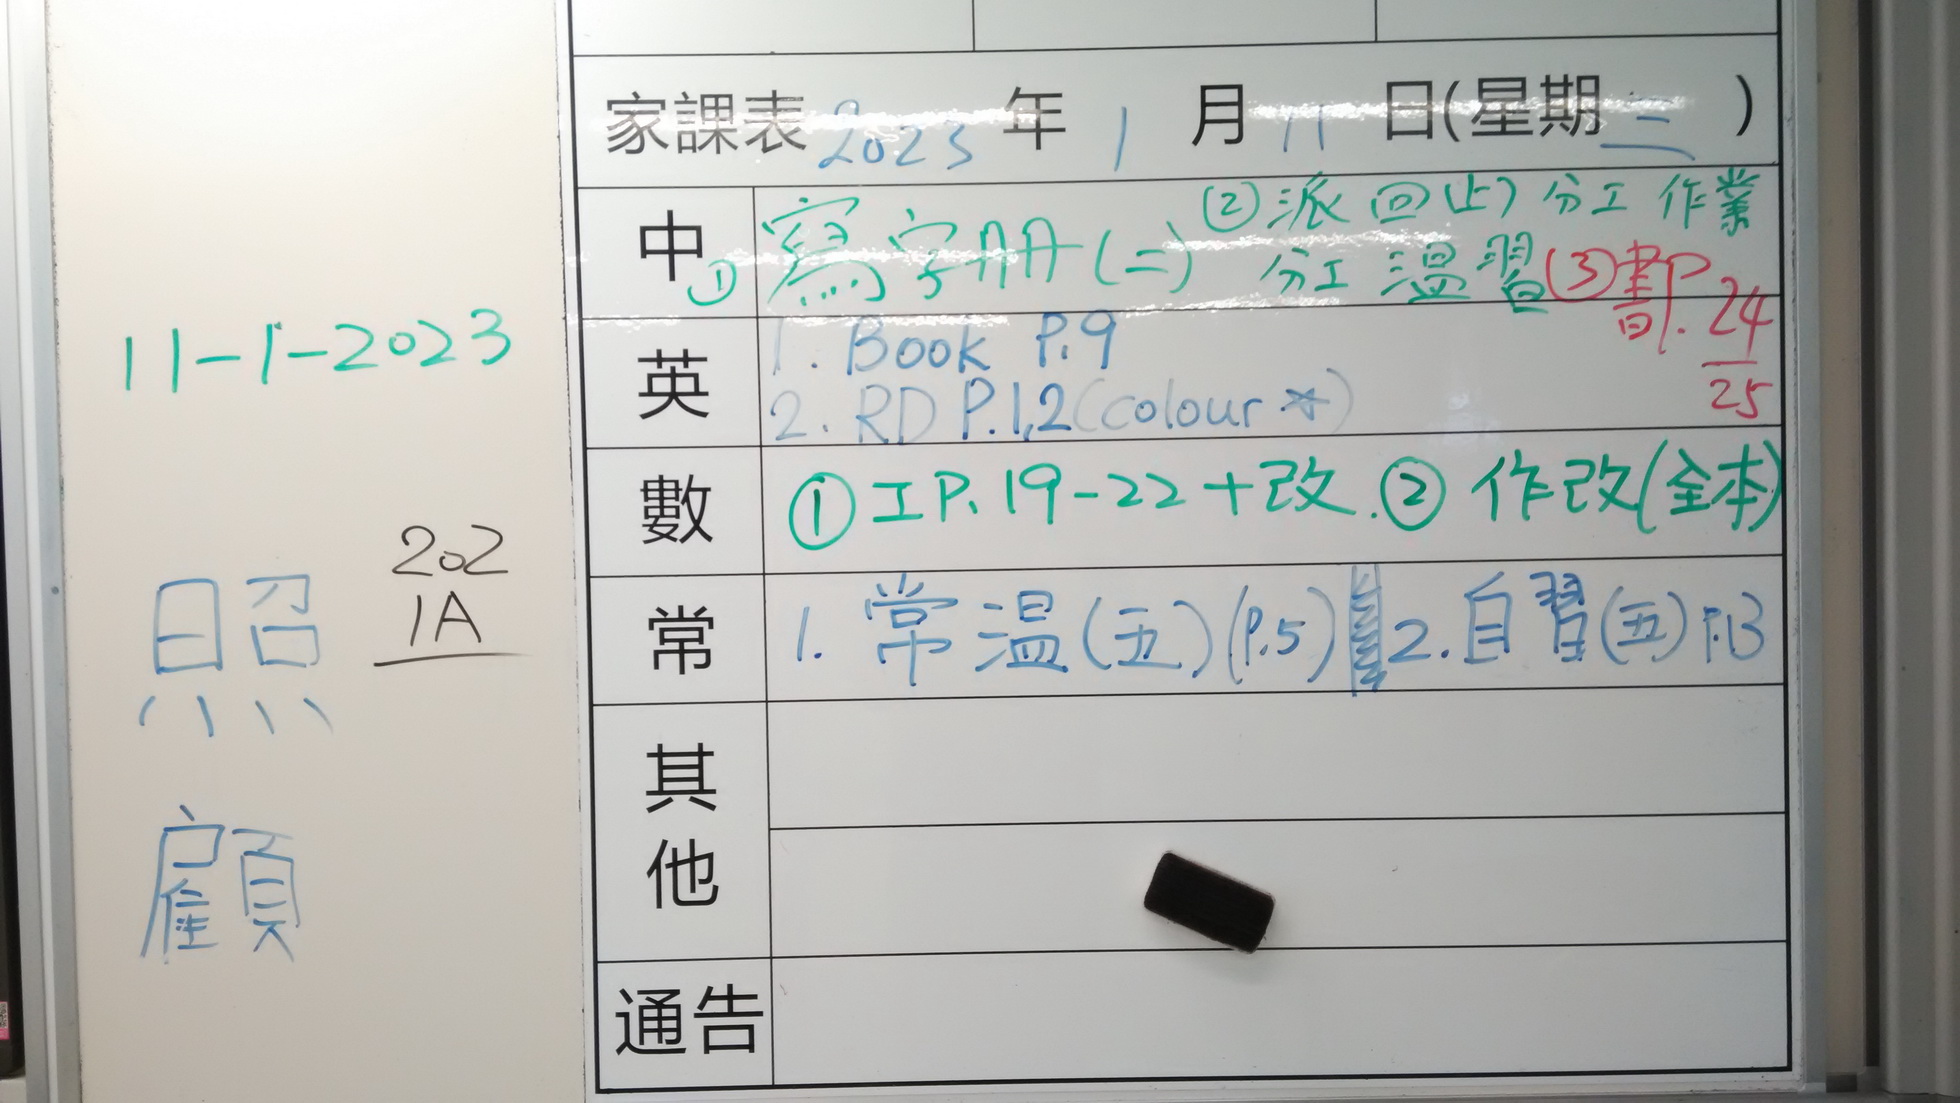 家課表 2023 年 1 月 11 日(星期三)
中 ① 寫字册(二) ② 派回(上)分工作業
分工溫習 (3) 書P. 24
25
英 1. Book P.9
2. RD P.1,2 (colour *)
數 ① 工P. 19-22 + 改. ② 作改(全本)
常 1. 常溫(五)(P.5) 2. 自習(五) P.13
其他
通告
11-1-2023
202
1A
照
顧